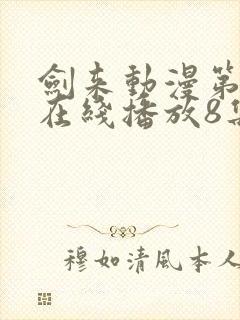 劍來動漫第
在綫播放8集
穆如清風本人